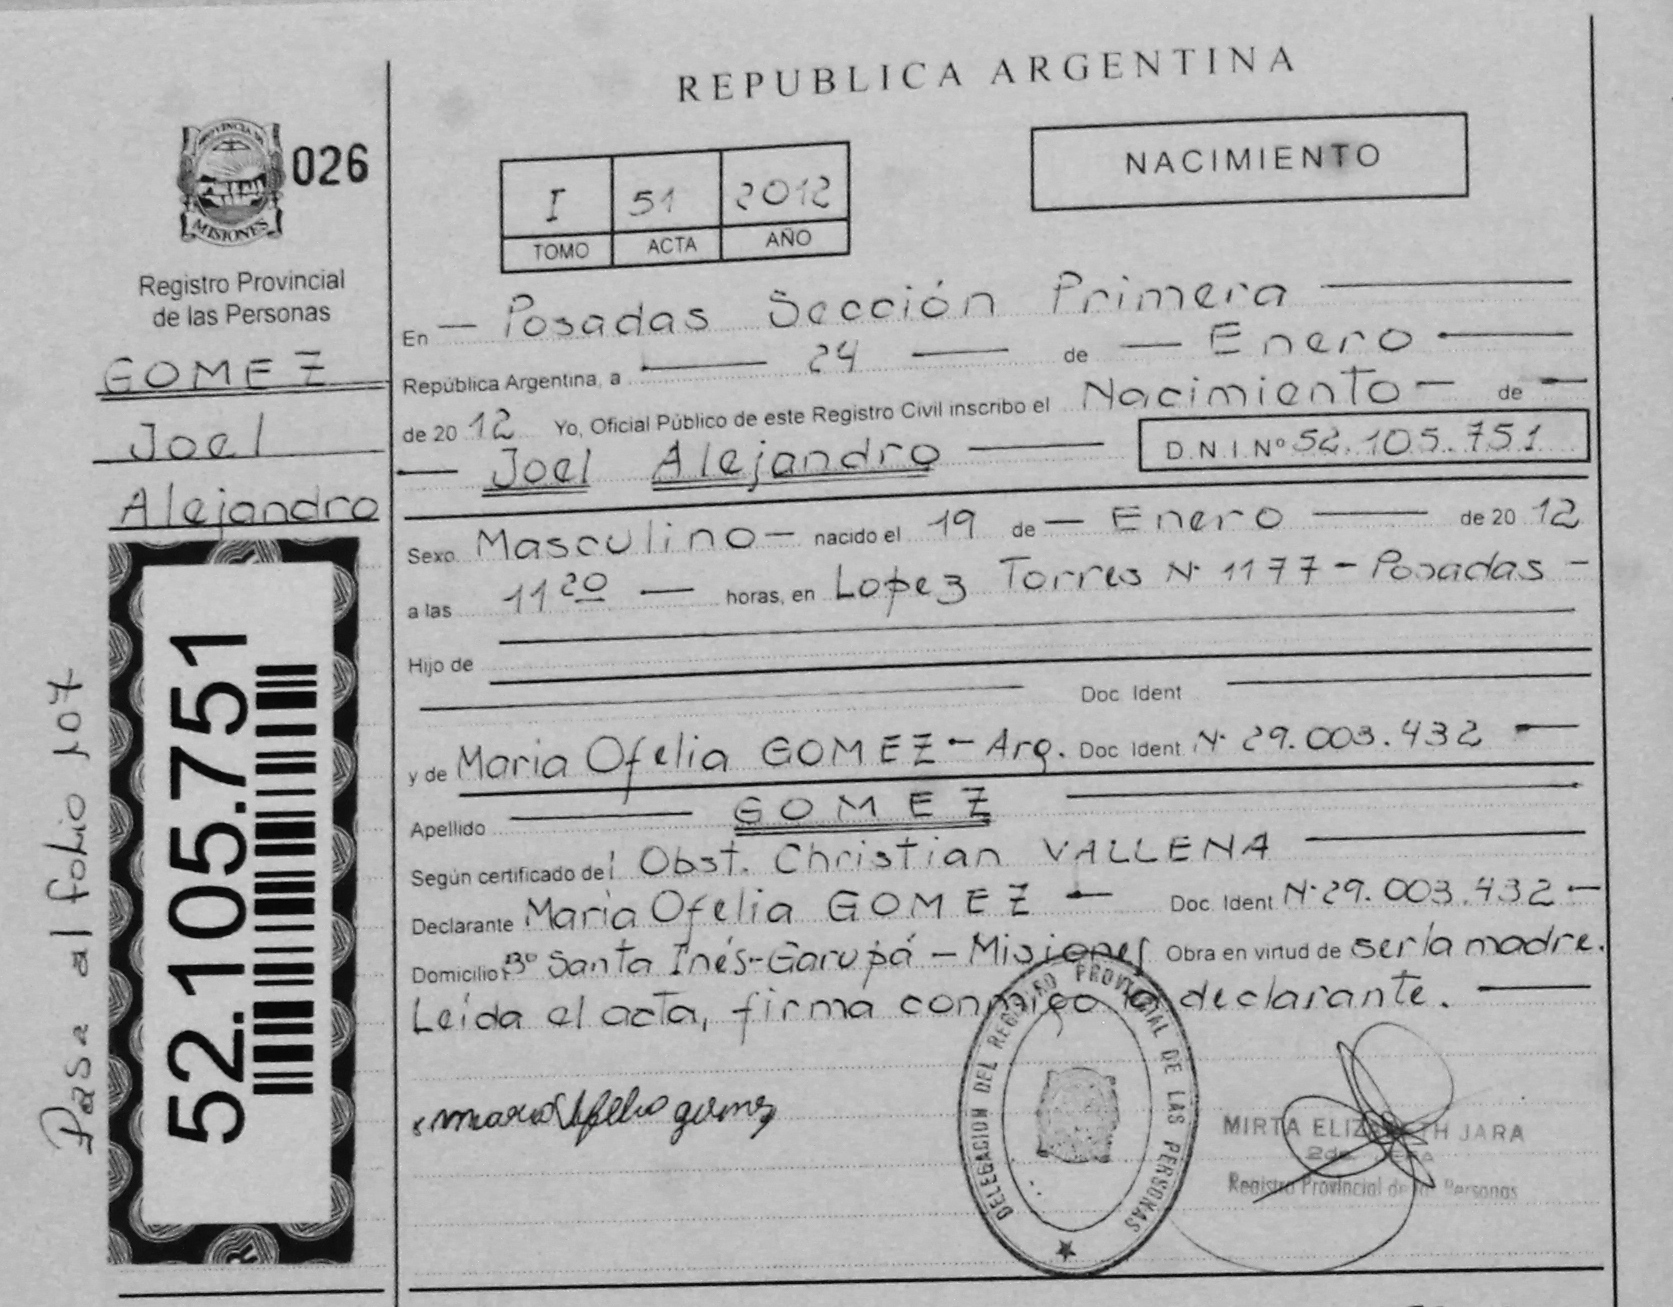 REPUBLICA ARGENTINA
PROVINCIA DE
MISIONES
026
Registro Provincial
de las Personas
GOMEZ
Joel
Alejandro
52.105.751
Pasa al folio 107
I 51 2012
TOMO ACTA AÑO
NACIMIENTO
En — Posadas Sección Primera —
República Argentina, a — 24 — de — Enero —
de 20 12 Yo, Oficial Público de este Registro Civil inscribo el Nacimiento — de —
— Joel Alejandro — D.N.I. Nº 52.105.751
Sexo Masculino — nacido el 19 de — Enero — de 20 12
a las 11 20 — horas, en Lopez Torres Nº 1177 - Posadas -
Hijo de
Doc. Ident
y de Maria Ofelia GOMEZ - Arg. Doc. Ident. Nº 29.003.432 —
Apellido — GOMEZ —
Según certificado del Obst. Christian VALLENA —
Declarante Maria Ofelia GOMEZ — Doc. Ident. Nº 29.003.432 —
Domicilio Bº Santa Inés - Garupá - Misiones Obra en virtud de ser la madre.
Leída el acta, firma conmigo la declarante. —
maria Ofelia gomez
DELEGACION DEL REGISTRO PROVINCIAL DE LAS PERSONAS
MIRTA ELIZABETH JARA
2da JEFA
Registro Provincial de las Personas